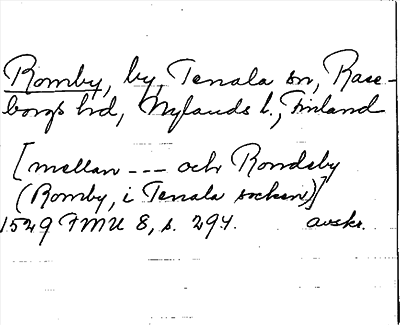 Romby, by, Tenala sn, Rase-
borgs hd, Nylands l., Finland
[mellan --- och Rondsby
(Romby, i Tenala socken)]
1529 FMU 8, s. 294. avskr.